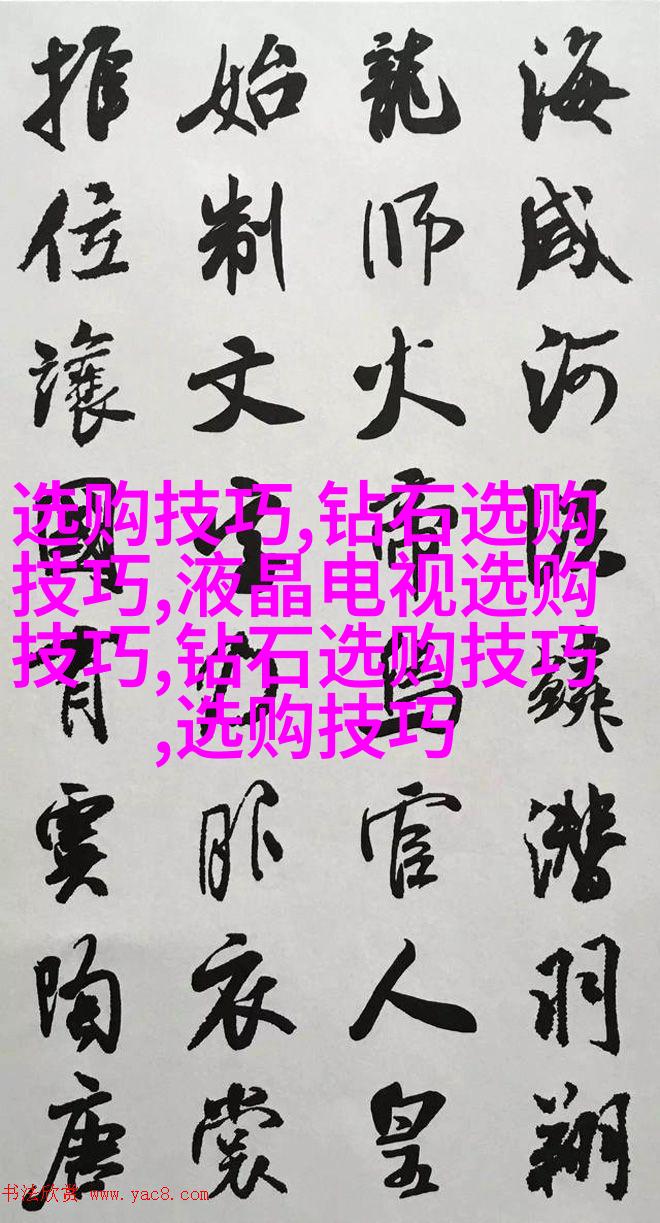 海咸河淡鱗潛羽翔
龍師火帝鳥官人皇
始制文字乃服衣裳
推位讓國有虞陶唐
选购技巧,钻石选购
技巧,液晶电视选购
技巧,钻石选购技巧
,选购技巧
书法欣赏 www.yac8.com